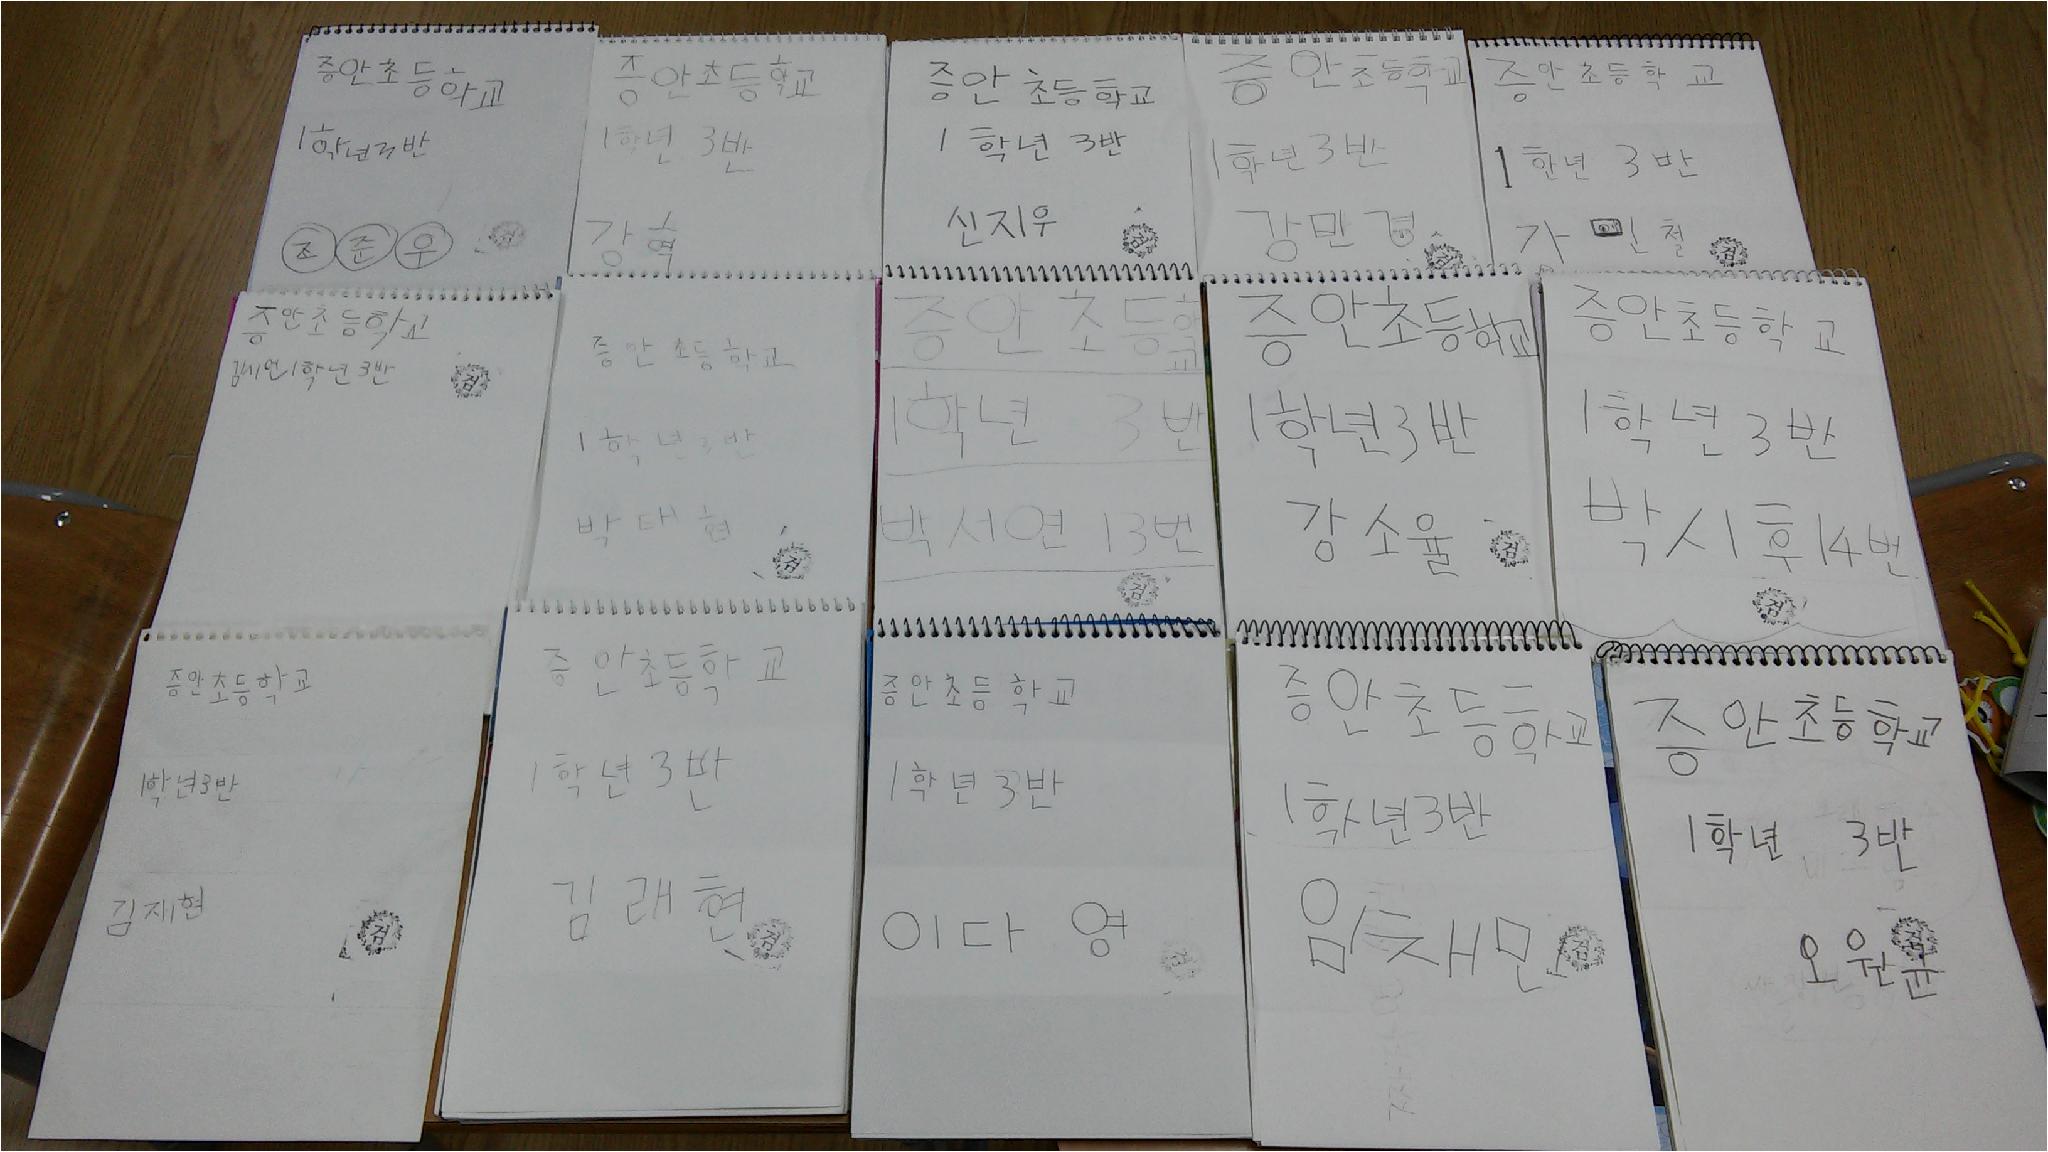 증안초등학교
1학년3반
조준우
검
증안초등학교
1학년 3반
강혁
증안 초등학교
1 학년 3반
신지우
검
증안초등학교
1학년3반
강민경
검
증안초등학 교
1 학년 3 반
철
검
증안초등학교
김시언1학년3반
검
증안 초등학교
1학년3반
박태현
검
증안 초등학교
1학년 3반
박서연 13번
검
증안초등학교
1학년3반
강소율
검
증안초등학 교
1학년3반
박시후14번
검
증안초등학교
1학년3반
김재현
검
증안초등학 교
1학년3반
김래현
검
증안초등 학교
1학년 3반
이다 영
검
증안초등학교
1학년3반
임재민
검
증안초등학교
1학년 3반
오원균
검